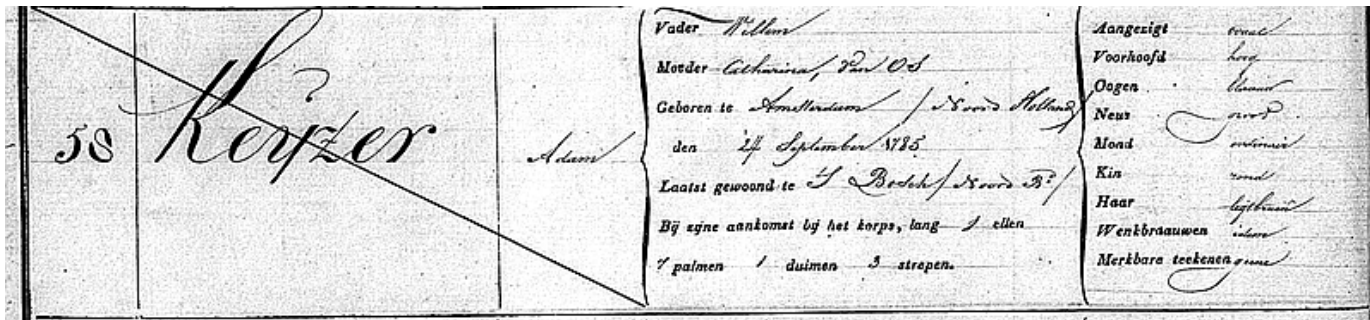 58 Keijzer
Adam
Vader Willem
Moeder Catharina, van OS
Geboren te Amsterdam / Noord Holland /
den 24 September 1785
Laatst gewoond te 'S Bosch / Noord Bt /
Bij zijne aankomst bij het korps, lang 1 ellen
7 palmen 1 duimen 3 strepen.
Aangezigt ovaal
Voorhoofd hoog
Oogen blaauw
Neus groot
Mond ordinair
Kin rond
Haar ligtbruin
Wenkbraauwen idem
Merkbare teekenen geene